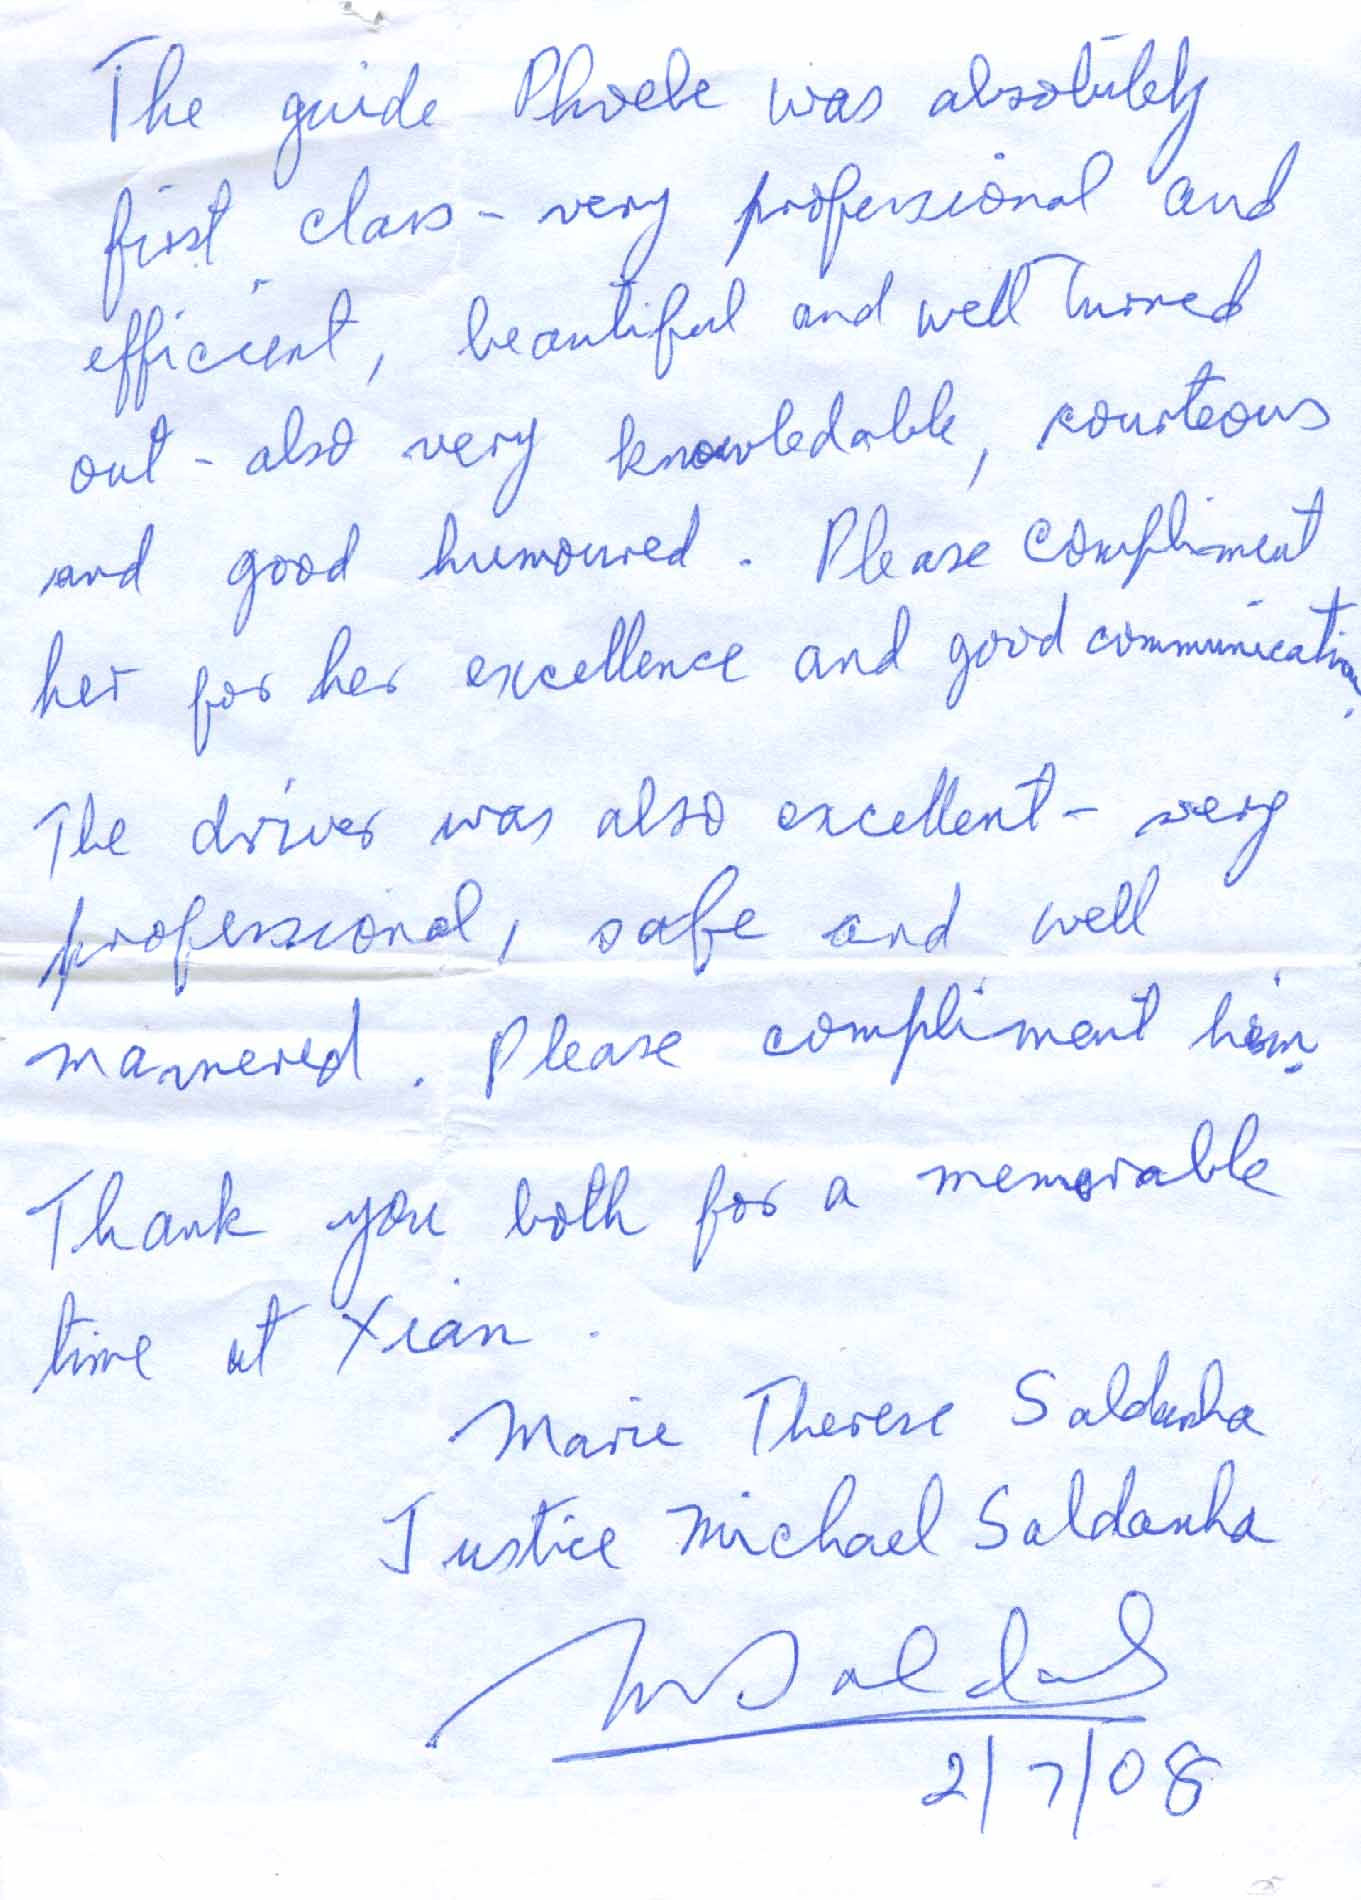 The guide Phoebe was absolutely
first class - very professional and
efficient, beautiful and well turned
out - also very knowledable, courteous
and good humoured. Please compliment
her for her excellence and good communication.
The driver was also excellent - very
professional, safe and well
mannered. Please compliment him.
Thank you both for a memorable
time at Xian.
Marie Therese Saldanha
Justice Michael Saldanha
M Saldanha
2/7/08